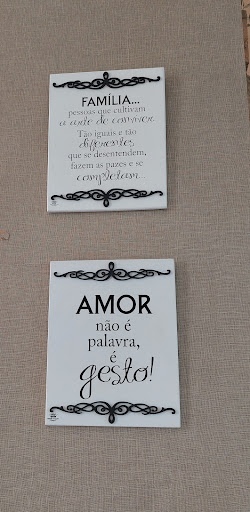 FAMÍLIA...
pessoas que cultivam
a arte de conviver.
Tão iguais e tão
diferentes,
que se desentendem,
fazem as pazes e se
completam...
AMOR
não é
palavra,
é
gesto!